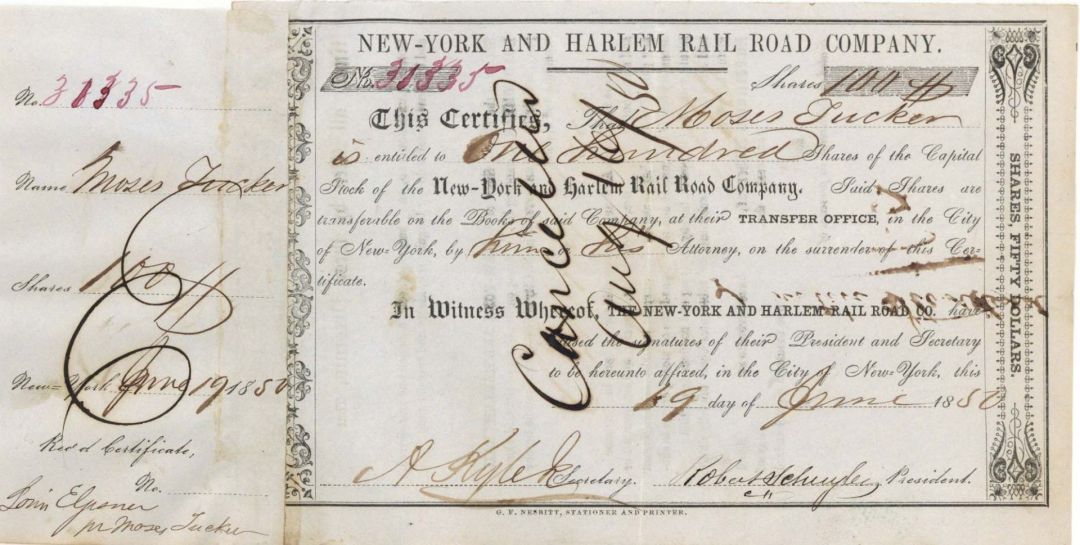 No. 30335
Name, Moses Tucker
Shares 100
New-York June 19 1850
Rec'd Certificate,
No.
pr Moses Tucker
NEW-YORK AND HARLEM RAIL ROAD COMPANY.
No. 30335 Shares 100
This Certifies, That Moses Tucker
is entitled to One hundred Shares of the Capital
Stock of the New-York and Harlem Rail Road Company. Said Shares are
transferable on the Books of said Company, at their TRANSFER OFFICE, in the City
of New-York, by him or his Attorney, on the surrender of this Cer-
tificate.
In Witness Whereof, THE NEW-YORK AND HARLEM RAIL ROAD CO. have
caused the signatures of their President and Secretary
to be hereunto affixed, in the City of New-York, this
19 day of June 1850
A Kyle Jr Secretary. Robert Schuyler President.
G. F. NESBITT, STATIONER AND PRINTER.
SHARES, FIFTY DOLLARS.
Cancelled